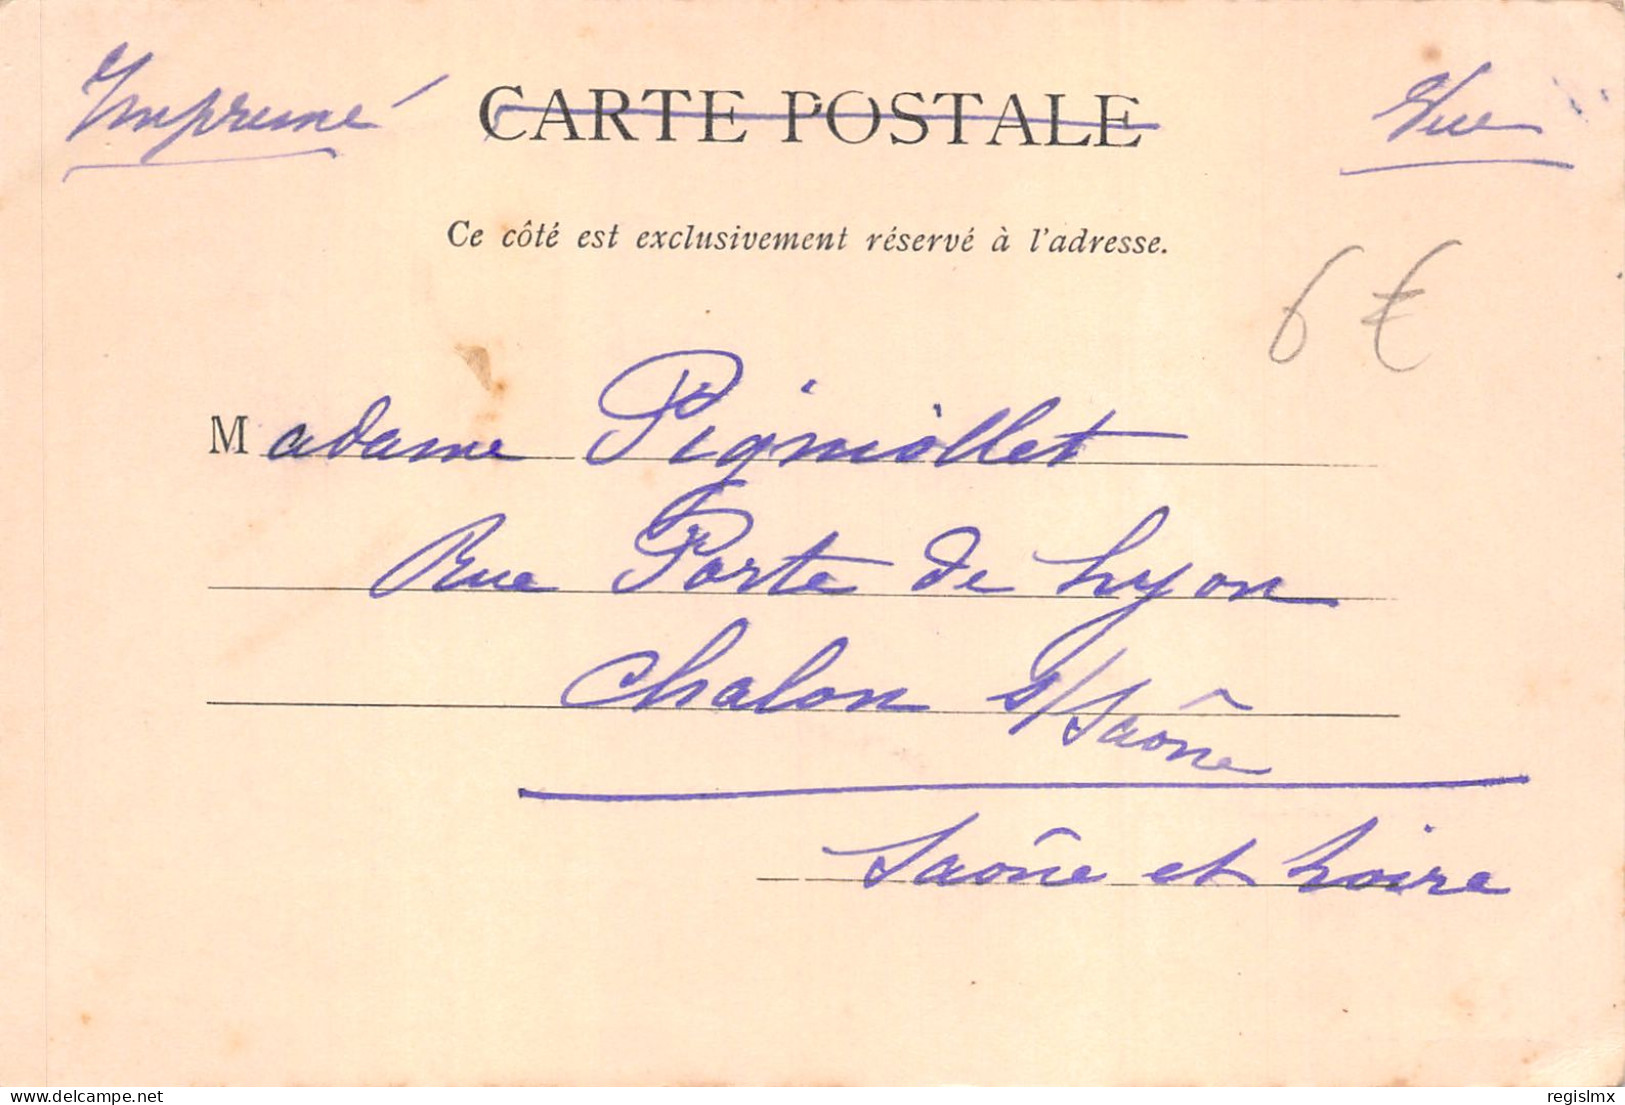 Imprimé CARTE POSTALE Vue
Ce côté est exclusivement réservé à l'adresse.
6 €
Madame Pigniollet
Rue Porte de Lyon
Chalon s/Saône
Saône et Loire
www.delcampe.net regislmx